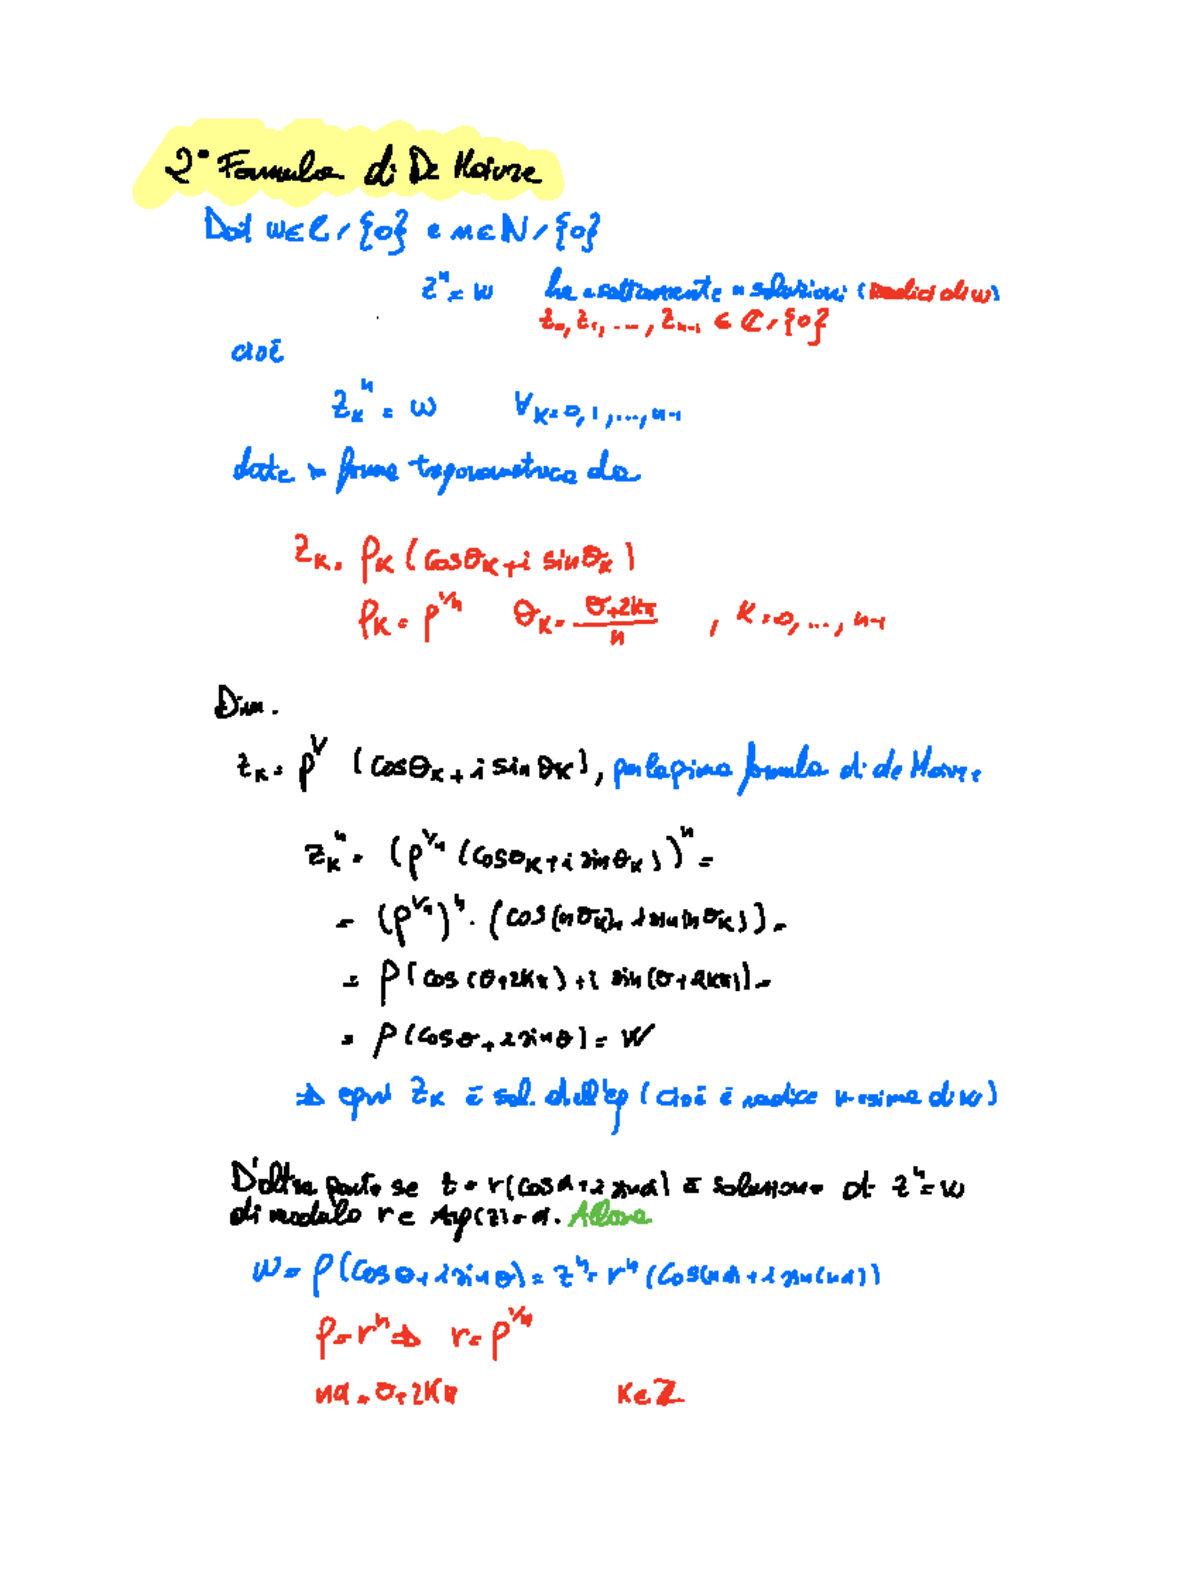 2° Formula di De Moivre
Dati w∈ℂ/{0} e n∈ℕ/{0}
zⁿ = w ha esattamente n soluzioni (radici di w)
z₀, z₁, ..., zₙ₋₁ ∈ ℂ/{0}
cioè
z_kⁿ = w ∀k=0,1,...,n-1
date in forma trigonometrica da
z_k = ρ_k (cosθ_k + i sinθ_k)
ρ_k = ρ^{1/n} θ_k = (θ+2kπ)/n , k=0,...,n-1
Dim.
z_k = ρ^{1/} (cosθ_k + i sinθ_k), per la prima formula di de Moivre
z_kⁿ = (ρ^{1/n} (cosθ_k + i sinθ_k))ⁿ =
= (ρ^{1/n})ⁿ · (cos(nθ_k) + i sin(nθ_k)) =
= ρ(cos(θ+2kπ) + i sin(θ+2kπ)) =
= ρ(cosθ + i sinθ) = w
⇒ ogni z_k è sol. dell'eq (cioè è radice n-esima di w)
D'altra parte se z = r(cosα + i sinα) è soluzione di zⁿ = w
di modulo r e Arg(z) = α. Allora
w = ρ(cosθ + i sinθ) = zⁿ = rⁿ (cos(nα) + i sin(nα))
ρ = rⁿ ⇒ r = ρ^{1/n}
nα = θ + 2kπ k∈ℤ